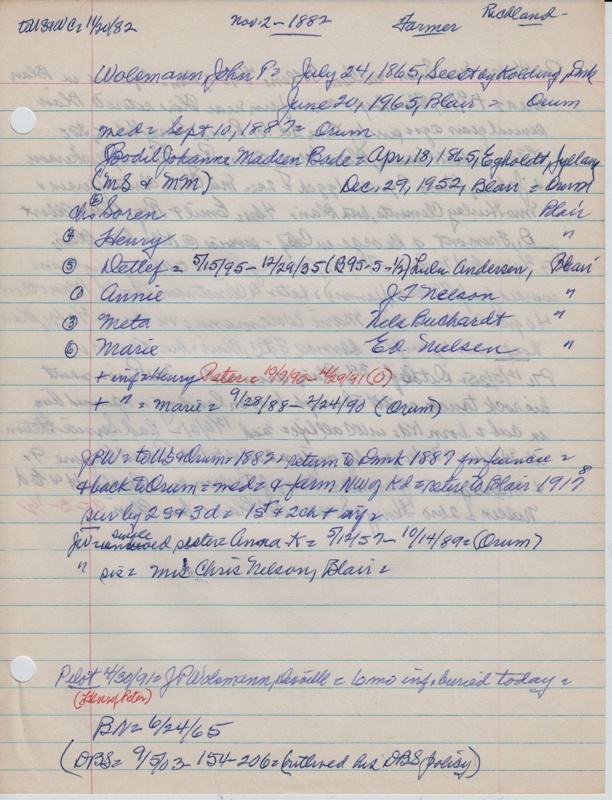 to US & WC = 11/20/82 Nov-2-1882 Farmer Richland-
Wolsmann, John P = July 24, 1865, Seest by Kolding, Dmk
June 20, 1965, Blair = Orum
med = Sept 10, 1887 = Orum
Bodil Johanne Madsen Bade = Apr, 18, 1865, Egholdt, Jylland
(MS & MM) Dec, 29, 1952, Blair = Orum
Soren Blair
④ Henry "
⑤ Detlef = 5/15/95 - 12/29/35 (B95-5-½) Lulu Andersen, Blair
① Annie J F Nelson "
③ Meta Nels Buchardt "
⑥ Marie Ed Nielsen "
+ inf = Henry Peter = 10/9/90 - 4/29/91 (O)
+ " = Marie = 9/28/88 - 2/24/90 (Orum)
JPW = to US & Orum = 1882 = return to Dmk 1887 for fiancie =
& back to Orum = med = & farm NW of Kd = retire to Blair 1917 8
sur by 2 S & 3 d = 1st & 2 ch +
single sister = Anna K = 5/12/57 - 10/14/89 = (Orum)
" sis = Mrs Chris Nelson, Blair =
Pilot 4/30/91 = J P Wolsmann, = 6 mo inf, buried today =
(Henry Peter)
BN = 6/24/65
(DBS = 9/5/03 - 154-206 = his DBS policy)